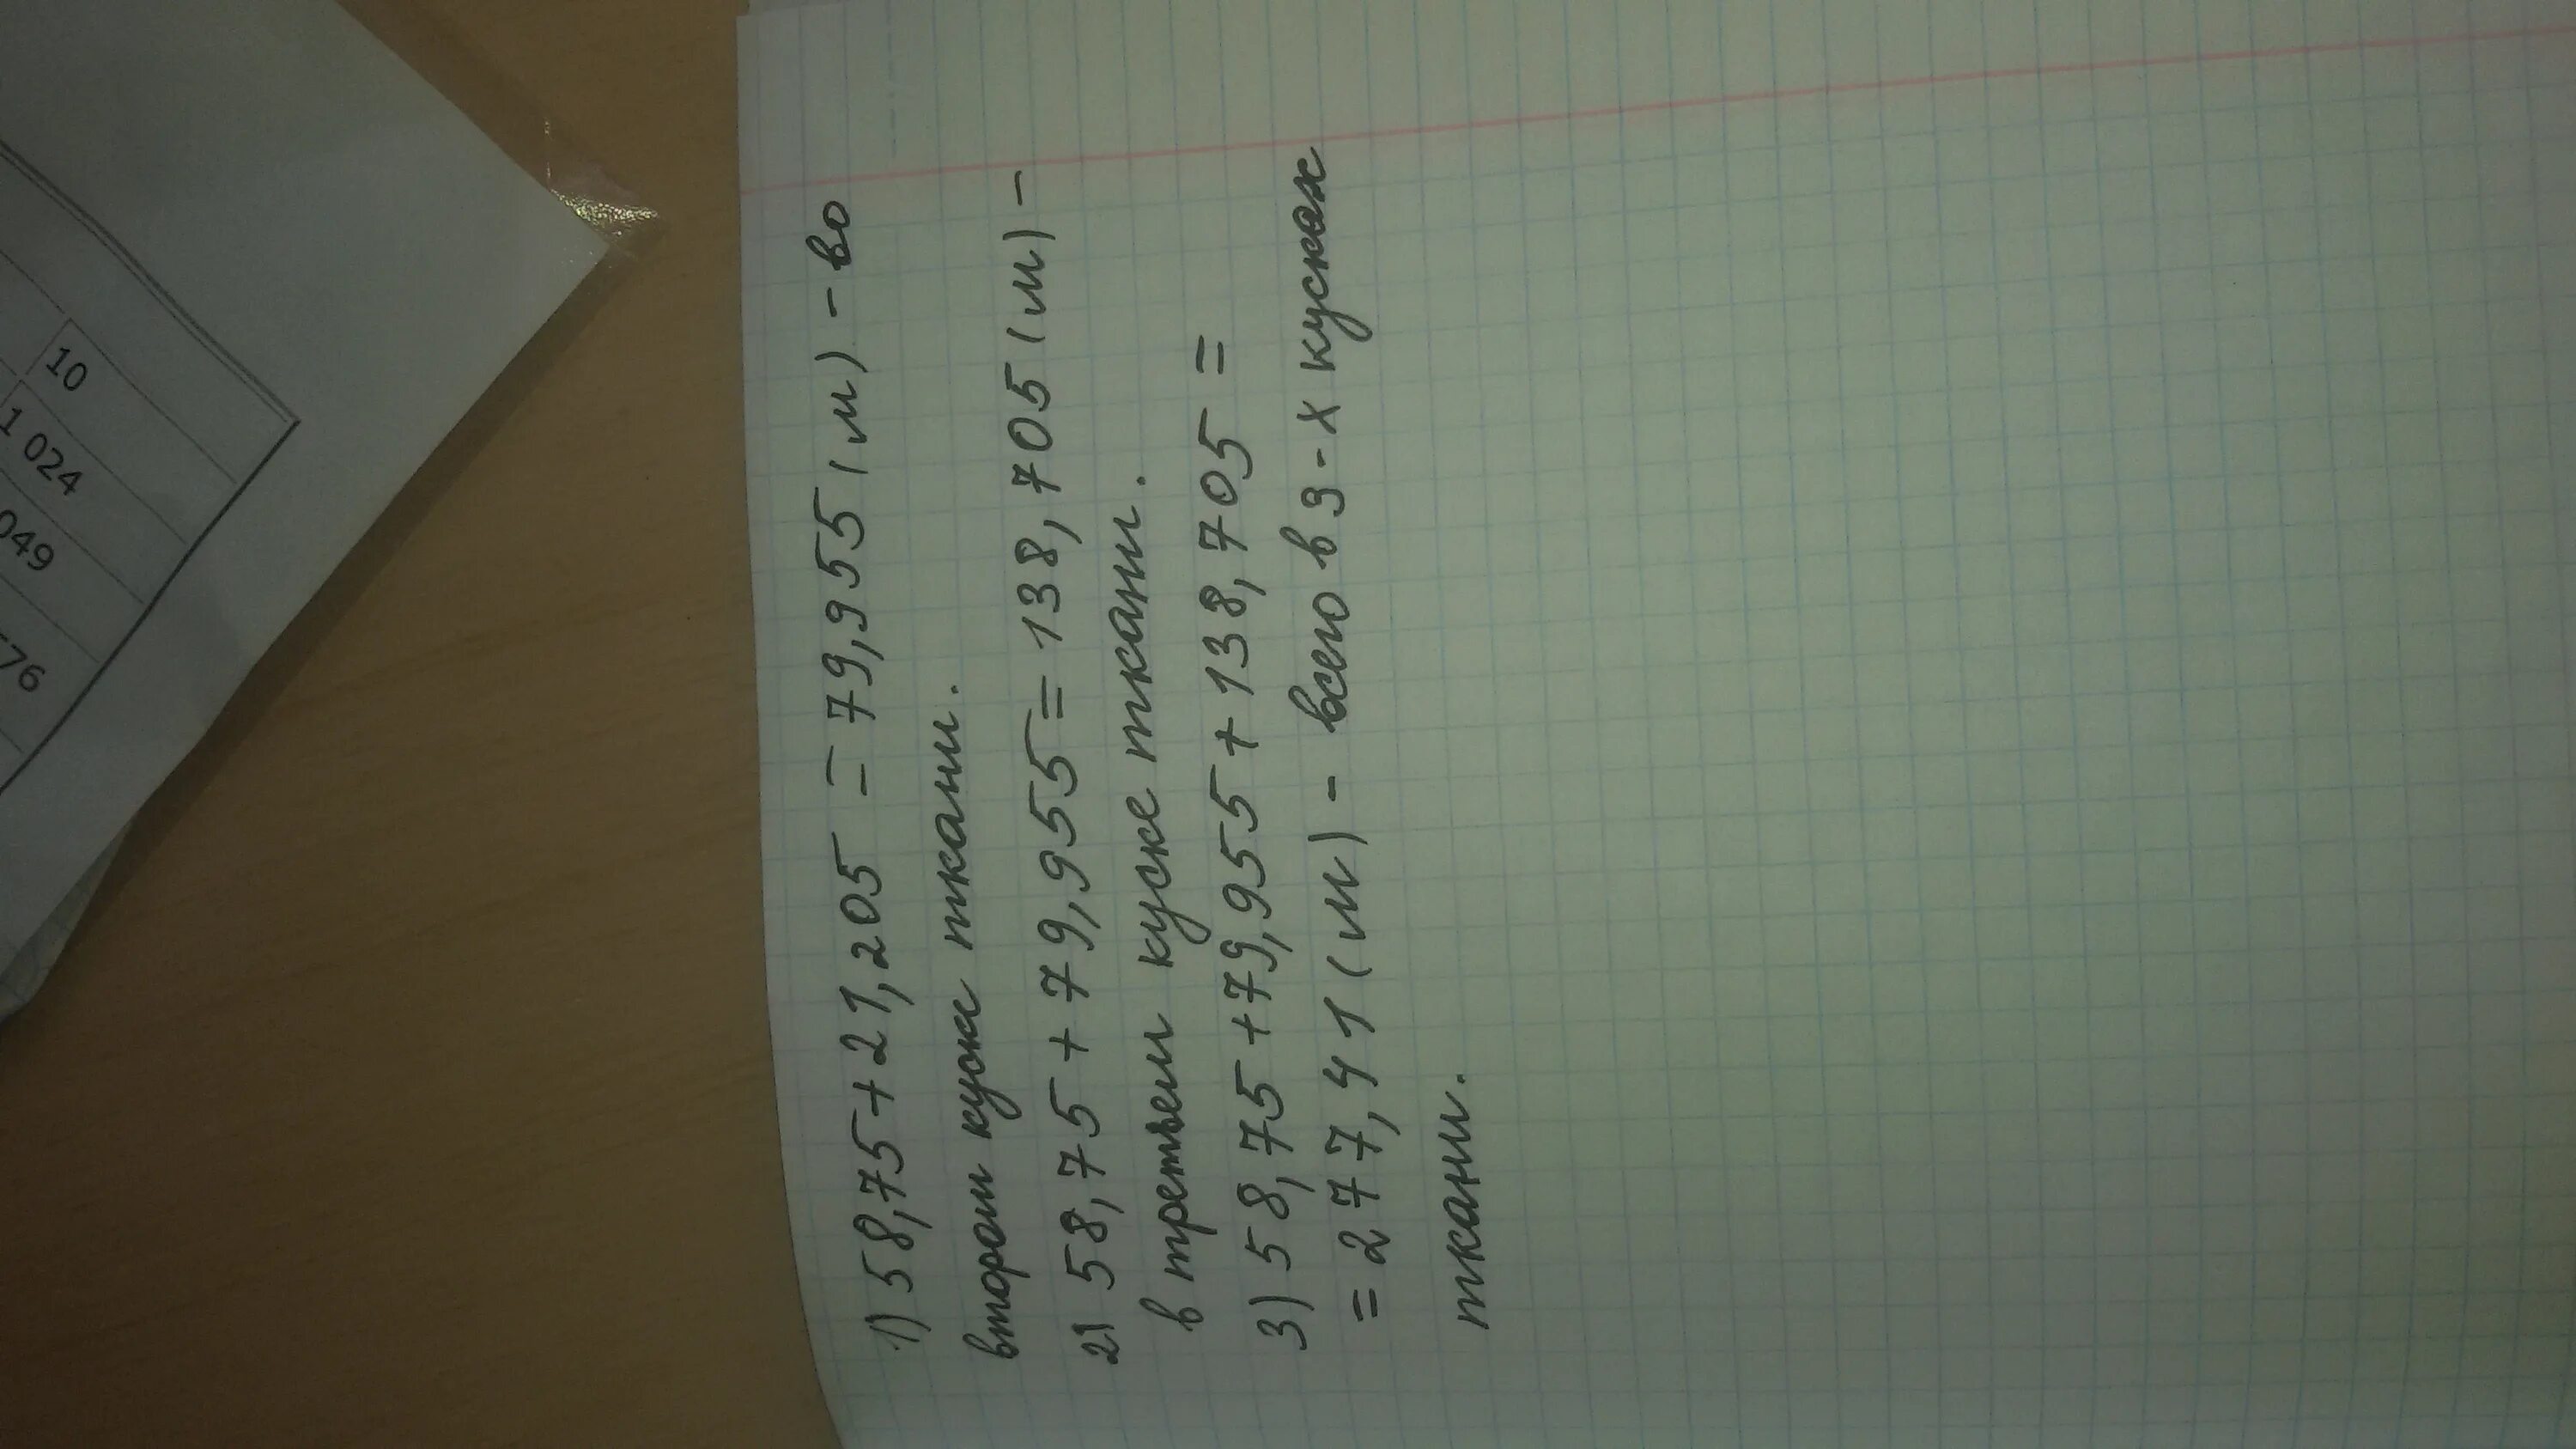 1) 58,75+21,205 = 79,955 (м) - во
втором куске ткани.
2) 58,75 + 79,955 = 138,705 (м) -
в третьем куске ткани.
3) 58,75+79,955+138,705 =
= 277,41 (м) - всего в 3-х кусках
ткани.
10
1 024
049
76